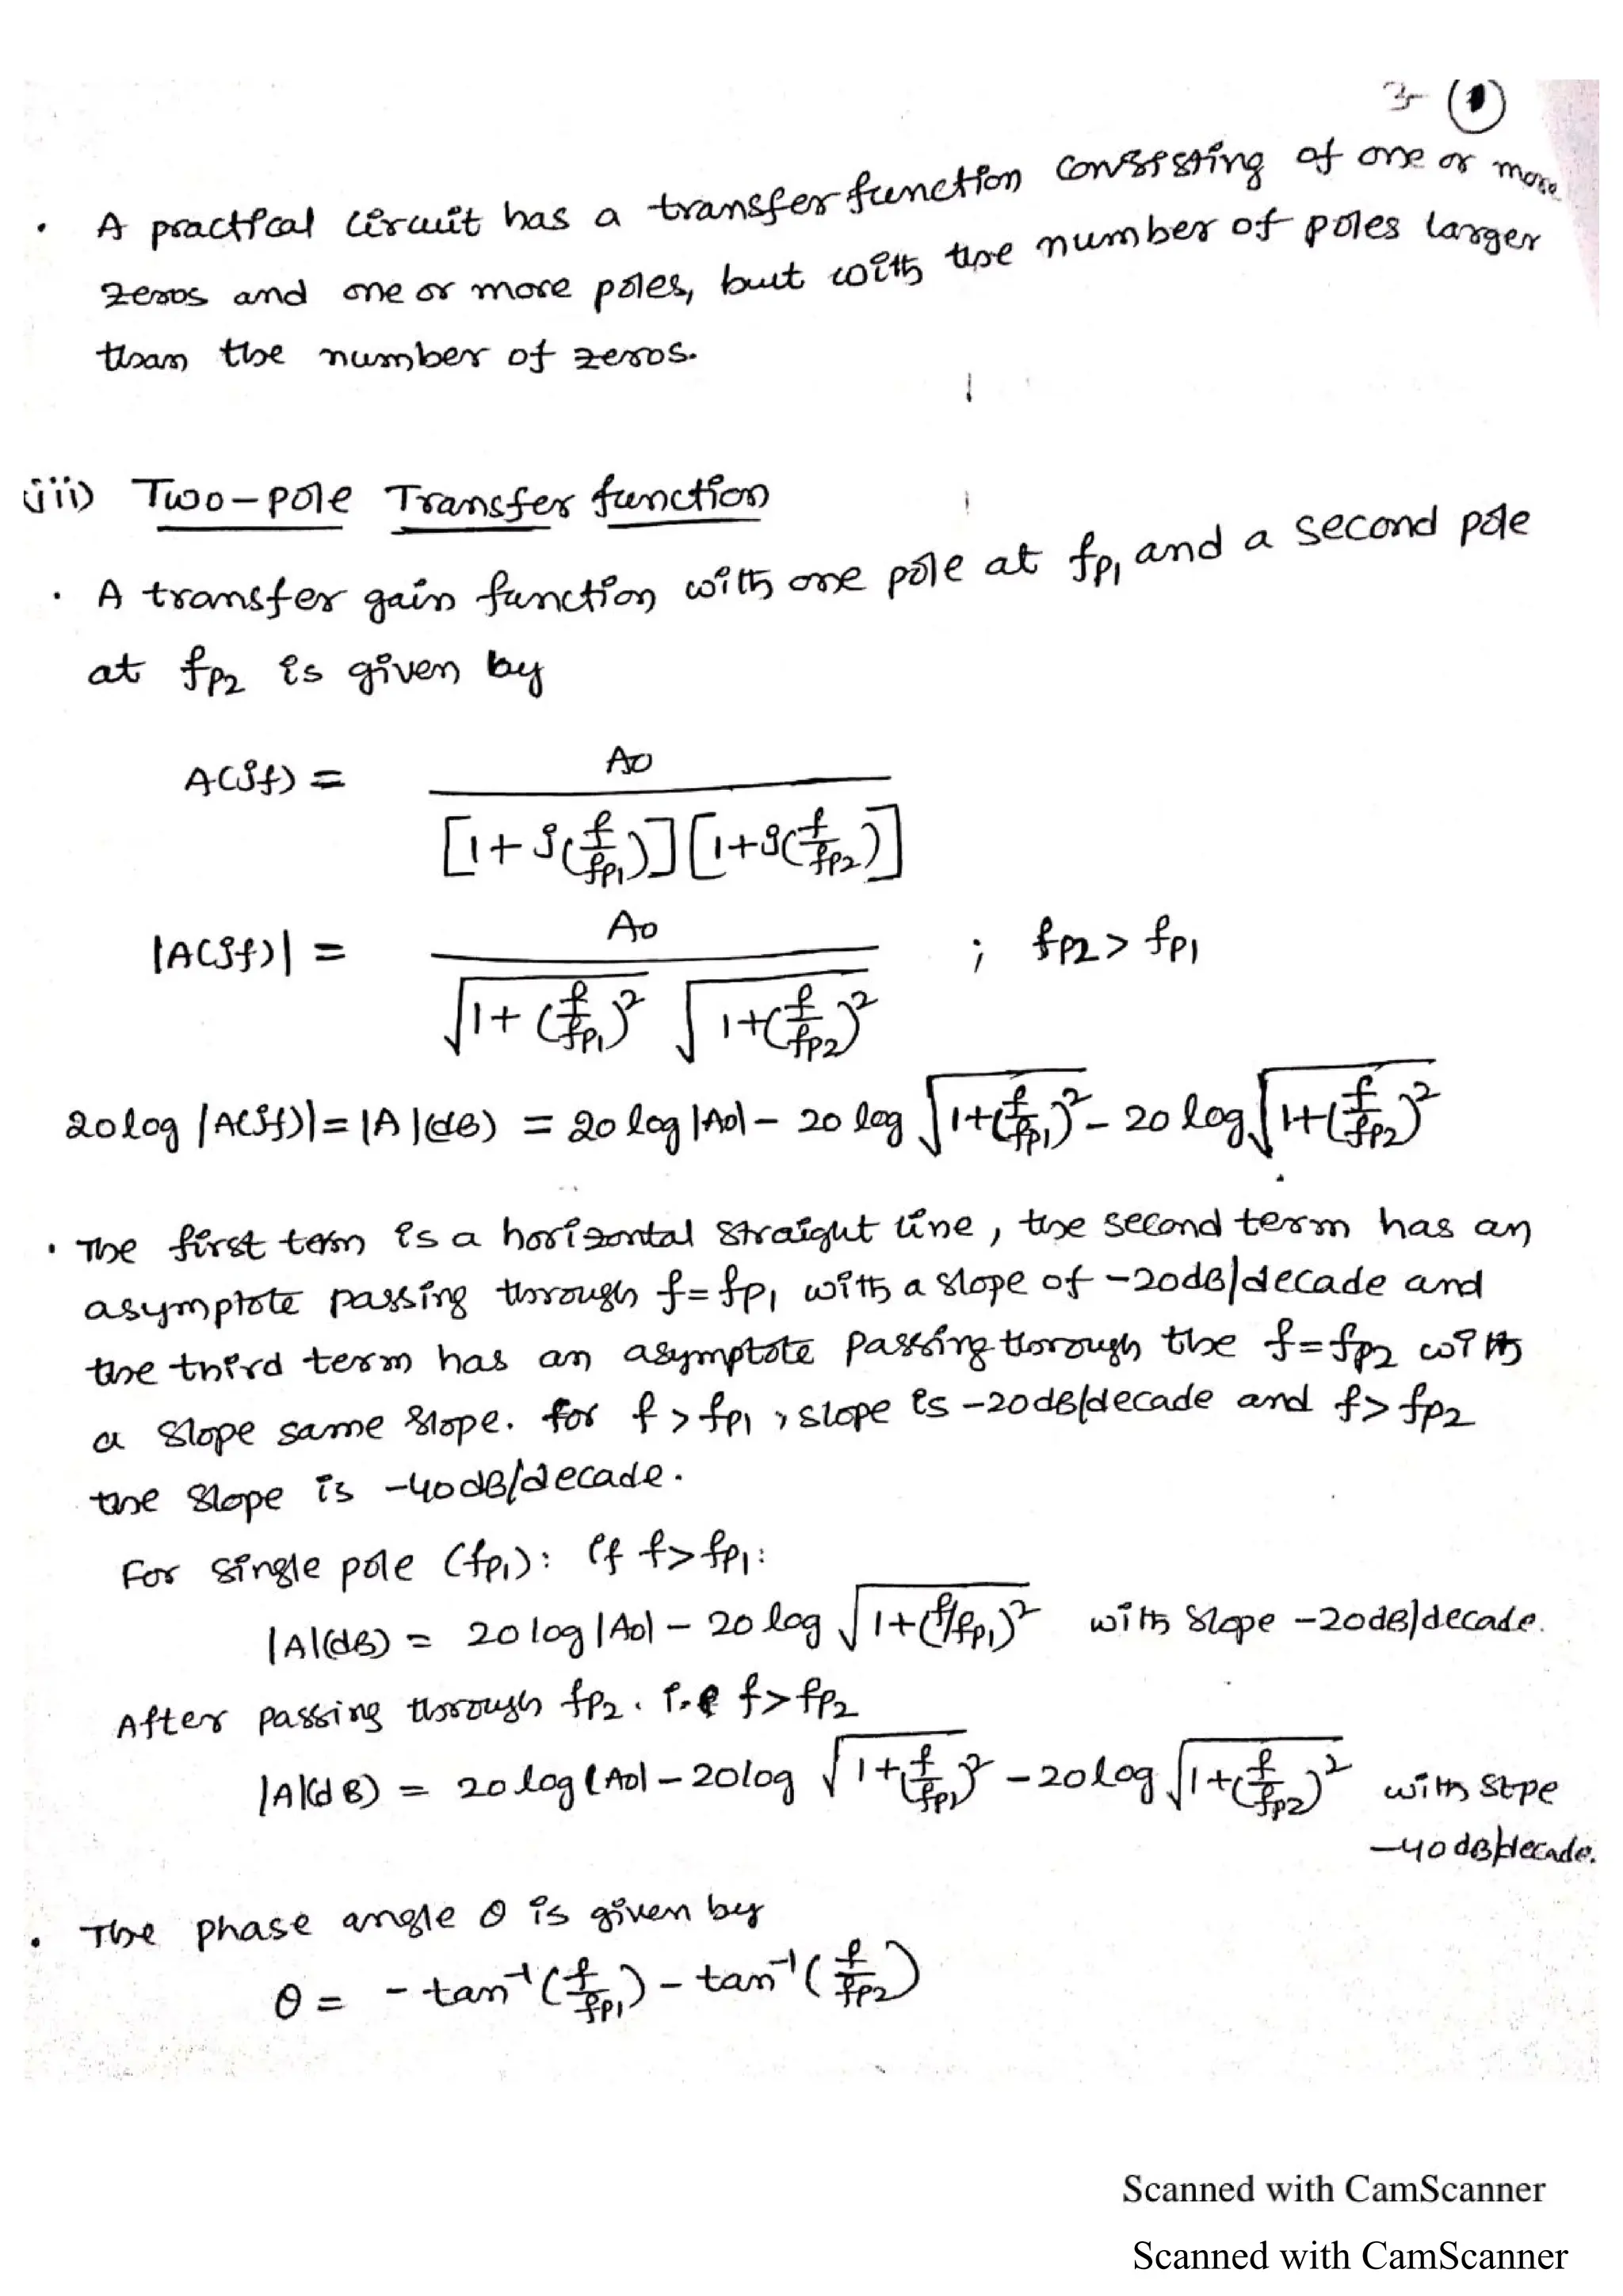 3-(1)
• A practical circuit has a transfer function consisting of one or more
zeros and one or more poles, but with the number of poles larger
than the number of zeros.
iii) Two-pole Transfer function
• A transfer gain function with one pole at fp1 and a second pole
at fp2 is given by
A(jf) = A0 / [1+j(f/fp1)][1+j(f/fp2)]
|A(jf)| = A0 / √1+(f/fp1)² √1+(f/fp2)² ; fp2 > fp1
20log |A(jf)| = |A|(dB) = 20 log |A0| - 20 log √1+(f/fp1)² - 20 log √1+(f/fp2)²
• The first term is a horizontal straight line, the second term has an
asymptote passing through f=fp1 with a slope of -20dB/decade and
the third term has an asymptote passing through the f=fp2 with
a slope same slope. for f > fp1, slope is -20dB/decade and f > fp2
the slope is -40dB/decade.
For single pole (fp1): if f>fp1:
|A|(dB) = 20 log |A0| - 20 log √1+(f/fp1)² with slope -20dB/decade.
After passing through fp2. i.e f>fp2
|A|(dB) = 20 log |A0| - 20log √1+(f/fp1)² - 20log √1+(f/fp2)² with slope
-40dB/decade.
• The phase angle θ is given by
θ = - tan⁻¹(f/fp1) - tan⁻¹(f/fp2)
Scanned with CamScanner
Scanned with CamScanner